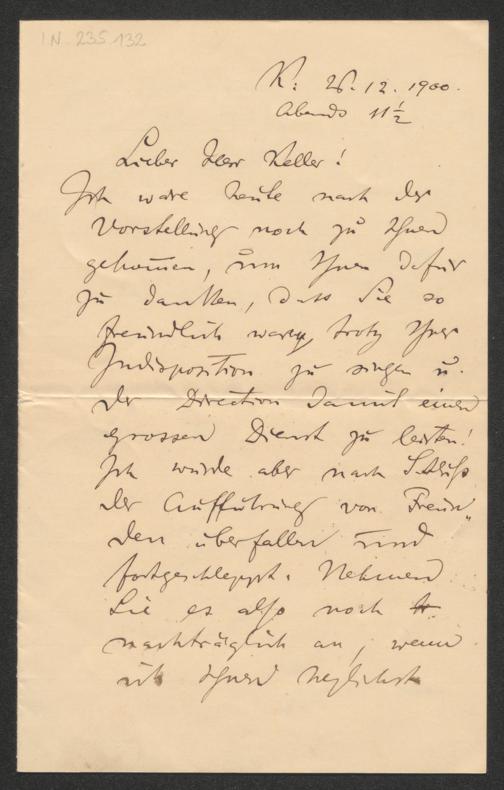 I.N. 235.132
K: 26.12.1900.
Abends 11 1/2
Lieber Herr Keller!
Ich wäre heute nach der
Vorstellung noch zu Ihnen
gekommen, um Ihnen dafür
zu danken, dass Sie so
freundlich waren, trotz Ihrer
Indisposition zu singen u.
der Direction damit einen
grossen Dienst zu leisten!
Ich wurde aber nach Schluß
der Aufführung von Freun„
den überfallen und
fortgeschleppt. Nehmen
Sie es also noch
nachträglich an, wenn
ich Ihnen herzlichst